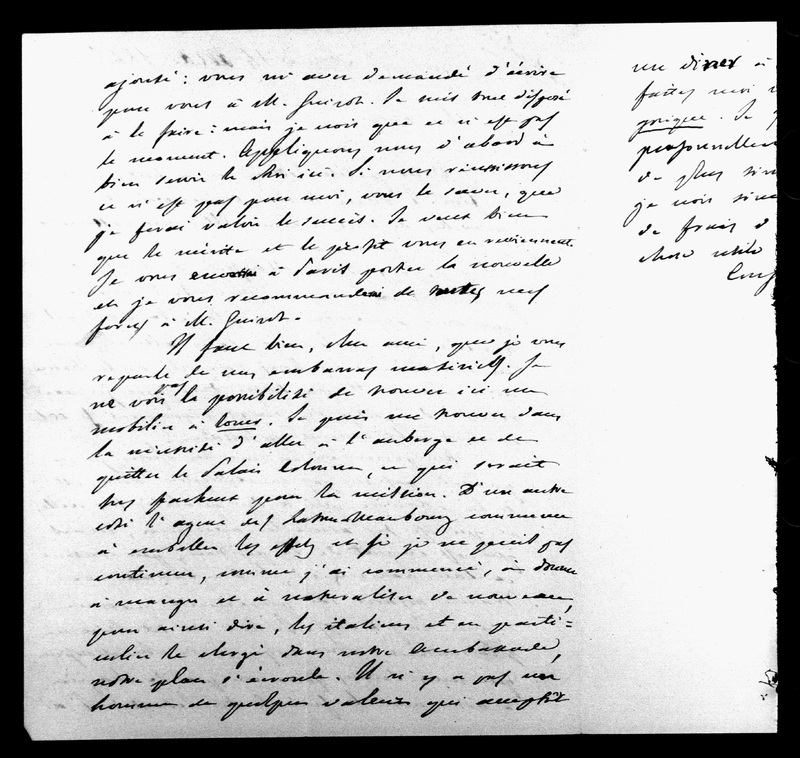 ajouté : vous m'avez demandé d'écrire
pour vous à M. Guizot. Je suis tout disposé
à le faire : mais je crois que ce n'est pas
le moment. Appliquons nous d'abord à
bien servir le Roi ici. Si nous réussissons
ce n'est pas pour moi, vous le savez, que
je ferai valoir le succès. Je veux bien
que le mérite et le profit vous en reviennent.
Je vous enverrai à Paris porter la nouvelle
et je vous recommanderai de toutes mes
forces à M. Guizot.
Il faut bien, cher ami, que je vous
reparle de mes embarras matériels. Je
ne vois pas la possibilité de trouver ici un
mobilier à louer. Je puis me trouver dans
la nécessité d'aller à l'auberge et de
quitter le Palais Colonna, ce qui serait
très fâcheux pour la mission. D'un autre
côté l'agent des Latour-Maubourg commence
à emballer les effets et si je ne puis pas
continuer, comme j'ai commencé, à donner
à manger et à naturaliser de nouveau,
pour ainsi dire, les italiens et en parti=
culier le clergé dans notre Ambassade,
notre plan s'écroule. Il n'y a pas un
homme de quelque valeur qui acceptât
un diner à
faites moi

personnellement
de plus
je vois
de frais d
chose utile